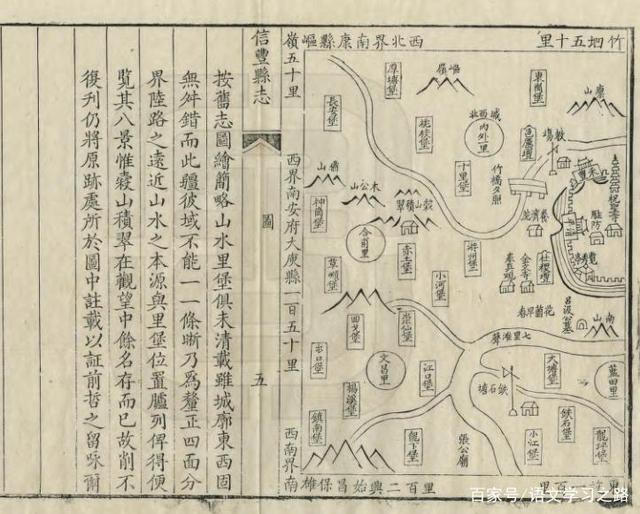 竹坝五十里
西北界南康縣崌
嶺五十里
西界南安府大庾縣一百五十里
西南界南
雄保昌始興二百里
東崗堡
厚壙堡
崌嶺
廩山
長安堡
城西北
内外里
教場
邑厲壇
十里堡
竹橋夕照
木公山
穀山積翠
神崗堡
合前里
游州堡
養濟院
駐防
社稷壇
金文寺
小河堡
草塘堡
南山
花園早春
七里灘聲
四戈堡
文昌里
江口堡
鉄石塘
大塘堡
藍田里
楊溪堡
鎮南堡
龍下堡
張公廟
小江堡
鉄石堡
信豐縣志
圖
五
按舊志圖繪簡略山水里堡俱未清載雖城廓東西固
無舛錯而此疆彼域不能一一條晰乃爲釐正四面分
界陸路之遠近山水之本源與里堡位置臚列俾得便
覽其八景惟穀山積翠在觀望中餘名存而已故削不
復刋仍將原跡處所於圖中註載以証前哲之留咏爾
百家号/语文学习之路